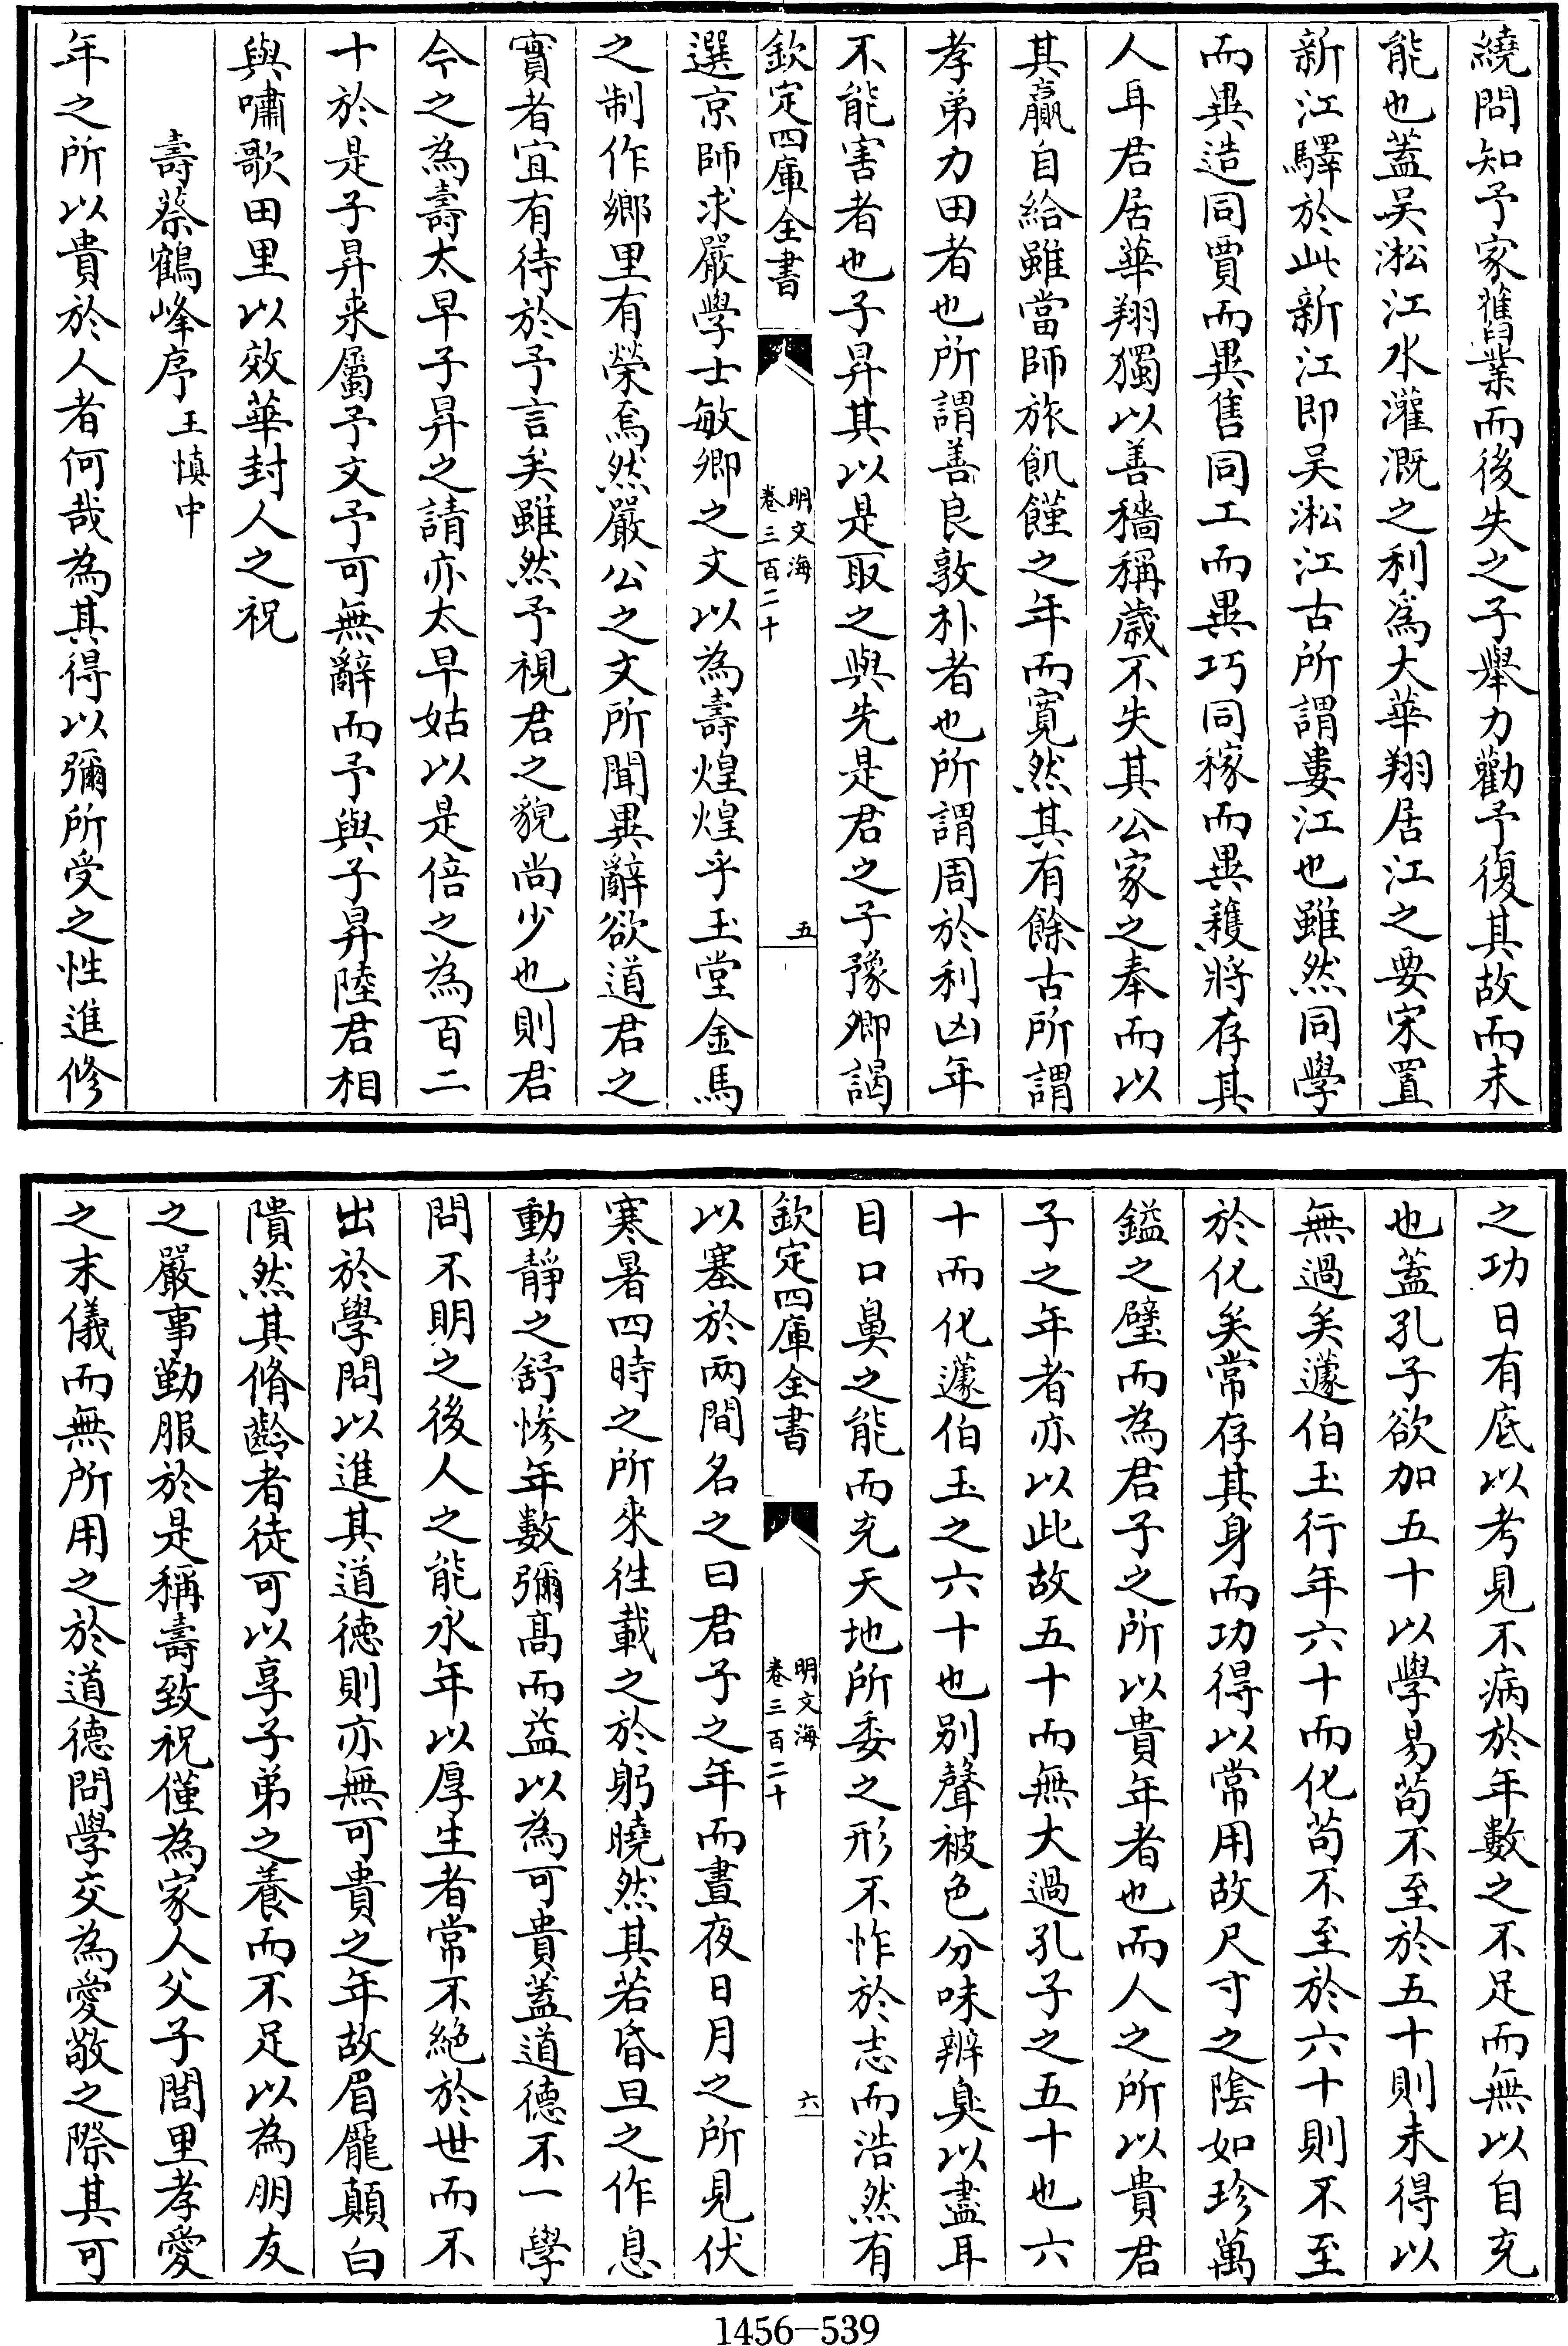 繞問知予家舊業而後失之子舉力勸予復其故而未
能也蓋吴淞江水灌溉之利為大華翔居江之要宋置
新江驛於此新江即吴淞江古所謂婁江也雖然同學
而異造同賈而異售同工而異巧同稼而異穫將存其
人耳君居華翔獨以善穡稱歳不失其公家之奉而以
其贏自給雖當師旅飢饉之年而寛然其有餘古所謂
孝弟力田者也所謂善良敦朴者也所謂周於利凶年
不能害者也子昇其以是取之與先是君之子豫卿謁
欽定四庫全書
明文海
卷三百二十
五
選京師求嚴學士敏卿之文以為壽煌煌乎玉堂金馬
之制作鄉里有榮焉然嚴公之文所聞異辭欲道君之
實者宜有待於予言矣雖然予視君之貌尚少也則君
今之為壽太早子昇之請亦太早姑以是倍之為百二
十於是子昇来屬予文予可無辭而予與子昇陸君相
與嘯歌田里以效華封人之祝
壽蔡鶴峰序 王慎中
年之所以貴於人者何哉為其得以彌所受之性進修
之功日有底以考見不病於年數之不足而無以自充
也蓋孔子欲加五十以學易茍不至於五十則未得以
無過矣蘧伯玉行年六十而化茍不至於六十則不至
於化矣常存其身而功得以常用故尺寸之陰如珍萬
鎰之璧而為君子之所以貴年者也而人之所以貴君
子之年者亦以此故五十而無大過孔子之五十也六
十而化蘧伯玉之六十也别聲被色分味辨臭以盡耳
目口鼻之能而充天地所委之形不怍於志而浩然有
欽定四庫全書
明文海
卷三百二十
六
以塞於兩間名之曰君子之年而晝夜日月之所見伏
寒暑四時之所來徃載之於躬曉然其若昏旦之作息
動靜之舒慘年數彌髙而益以為可貴蓋道德不一學
問不明之後人之能永年以厚生者常不絶於世而不
出於學問以進其道德則亦無可貴之年故眉龎顛白
隤然其脩齡者徒可以享子弟之養而不足以為朋友
之嚴事勤服於是稱壽致祝僅為家人父子閭里孝愛
之末儀而無所用之於道德問學交為愛敬之際其可
1456—539